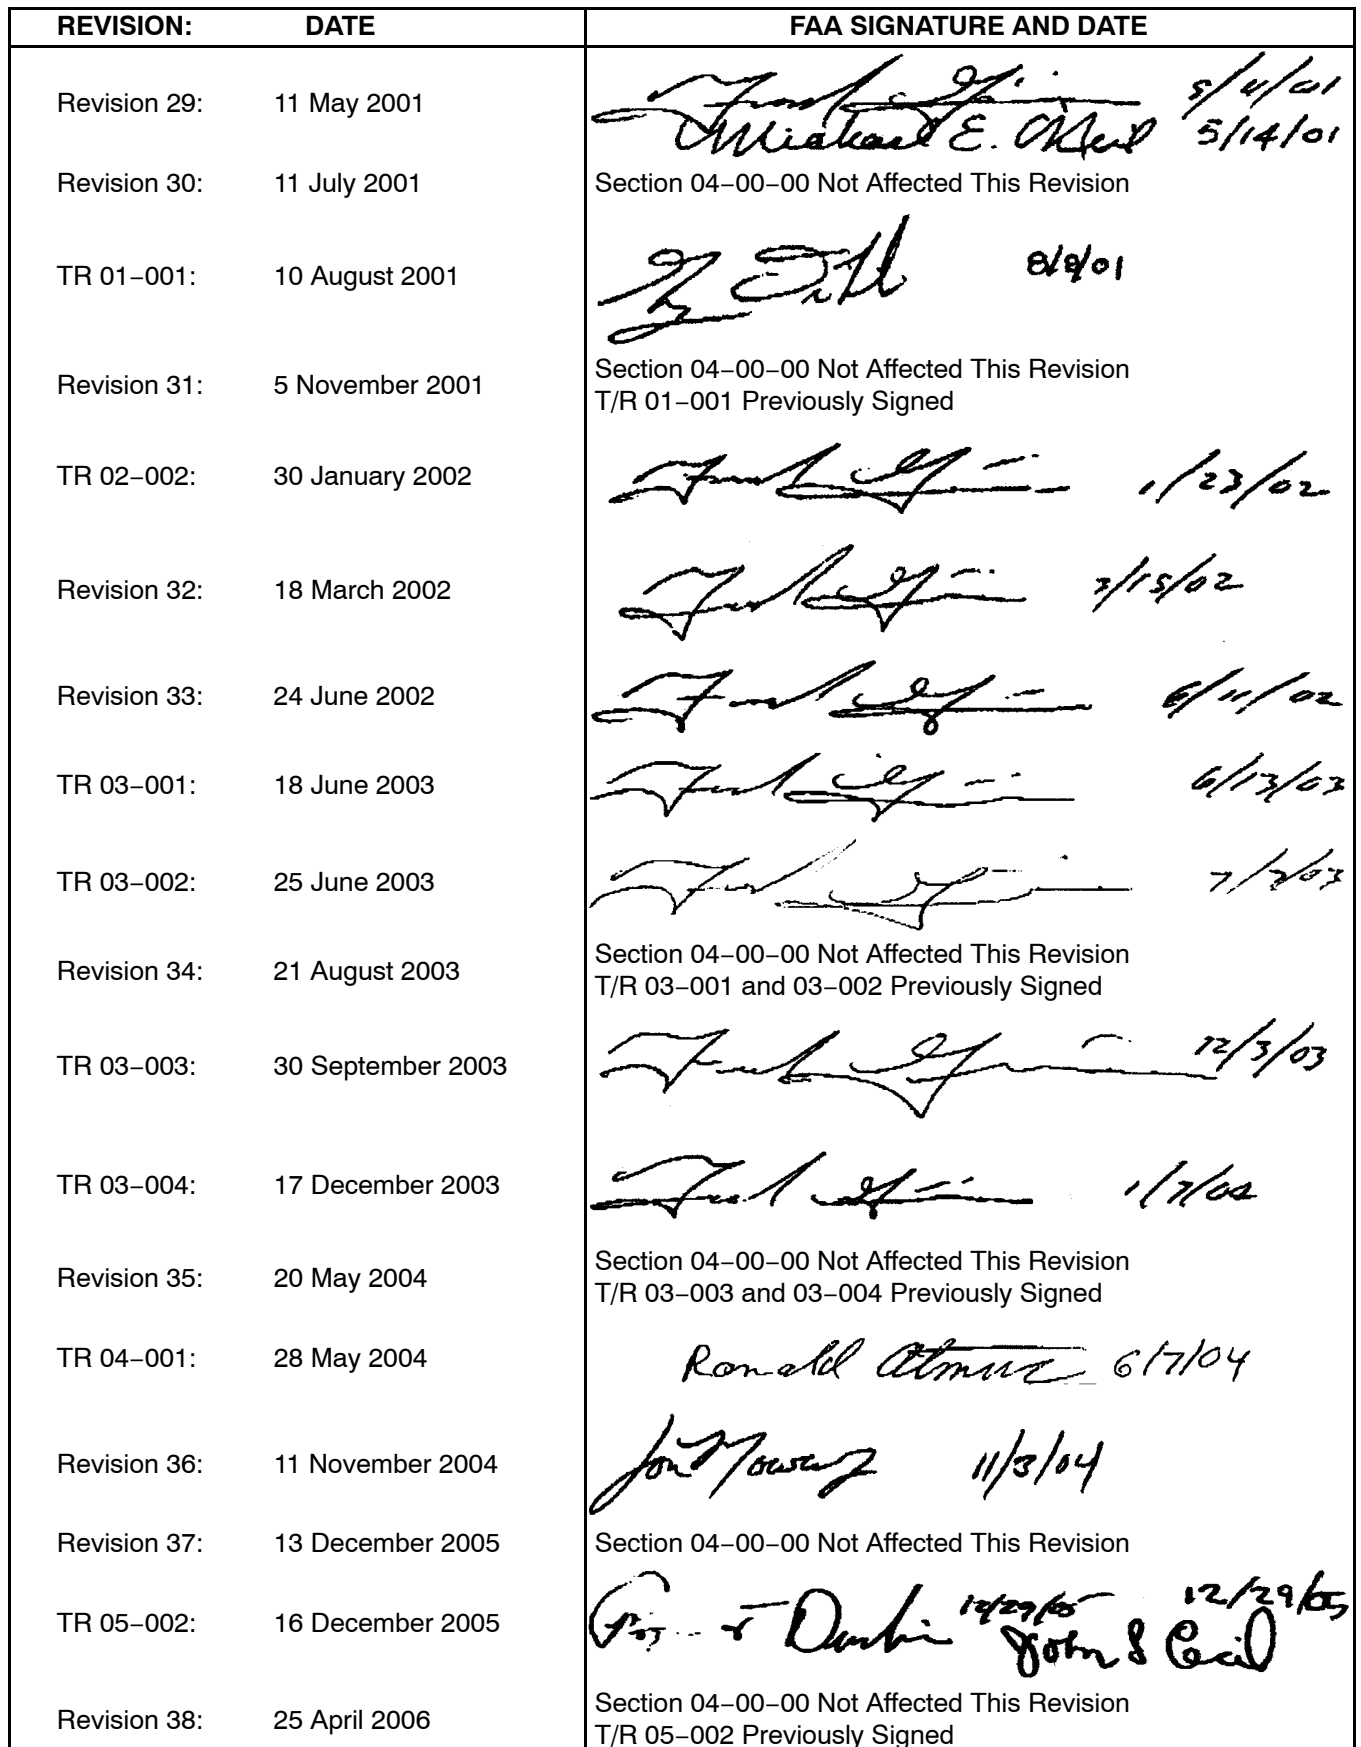 REVISION: DATE FAA SIGNATURE AND DATE
Revision 29: 11 May 2001 5/4/01
Michael E. O'Neil 5/14/01
Revision 30: 11 July 2001 Section 04–00–00 Not Affected This Revision
TR 01–001: 10 August 2001 8/8/01
Revision 31: 5 November 2001 Section 04–00–00 Not Affected This Revision
T/R 01–001 Previously Signed
TR 02–002: 30 January 2002 1/23/02
Revision 32: 18 March 2002 3/15/02
Revision 33: 24 June 2002 6/11/02
TR 03–001: 18 June 2003 6/13/03
TR 03–002: 25 June 2003 7/2/03
Revision 34: 21 August 2003 Section 04–00–00 Not Affected This Revision
T/R 03–001 and 03–002 Previously Signed
TR 03–003: 30 September 2003 12/3/03
TR 03–004: 17 December 2003 1/7/04
Revision 35: 20 May 2004 Section 04–00–00 Not Affected This Revision
T/R 03–003 and 03–004 Previously Signed
TR 04–001: 28 May 2004 Ronald 6/7/04
Revision 36: 11 November 2004 Jon 11/3/04
Revision 37: 13 December 2005 Section 04–00–00 Not Affected This Revision
TR 05–002: 16 December 2005 Durbin 12/29/05 12/29/05
John S Cecil
Revision 38: 25 April 2006 Section 04–00–00 Not Affected This Revision
T/R 05–002 Previously Signed